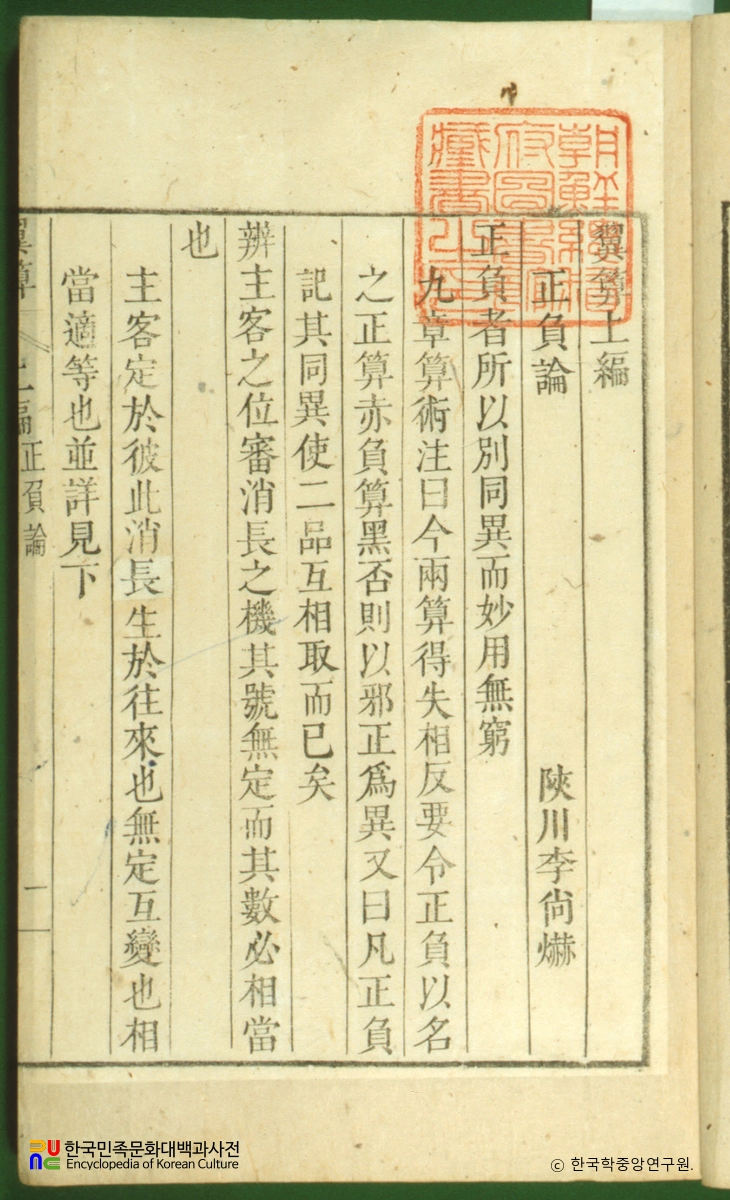 翼算上編
正負論
陜川李尙爀
正負者所以別同異而妙用無窮
九章算術注曰今兩算得失相反要令正負以名
之正算赤負算黑否則以邪正爲異又曰凡正負
記其同異使二品互相取而已矣
辨主客之位審消長之機其號無定而其數必相當
也
主客定於彼此消長生於往來也無定互變也相
當適等也並詳見下
翼算
上編正負論
一
한국민족문화대백과사전
Encyclopedia of Korean Culture
ⓒ 한국학중앙연구원.